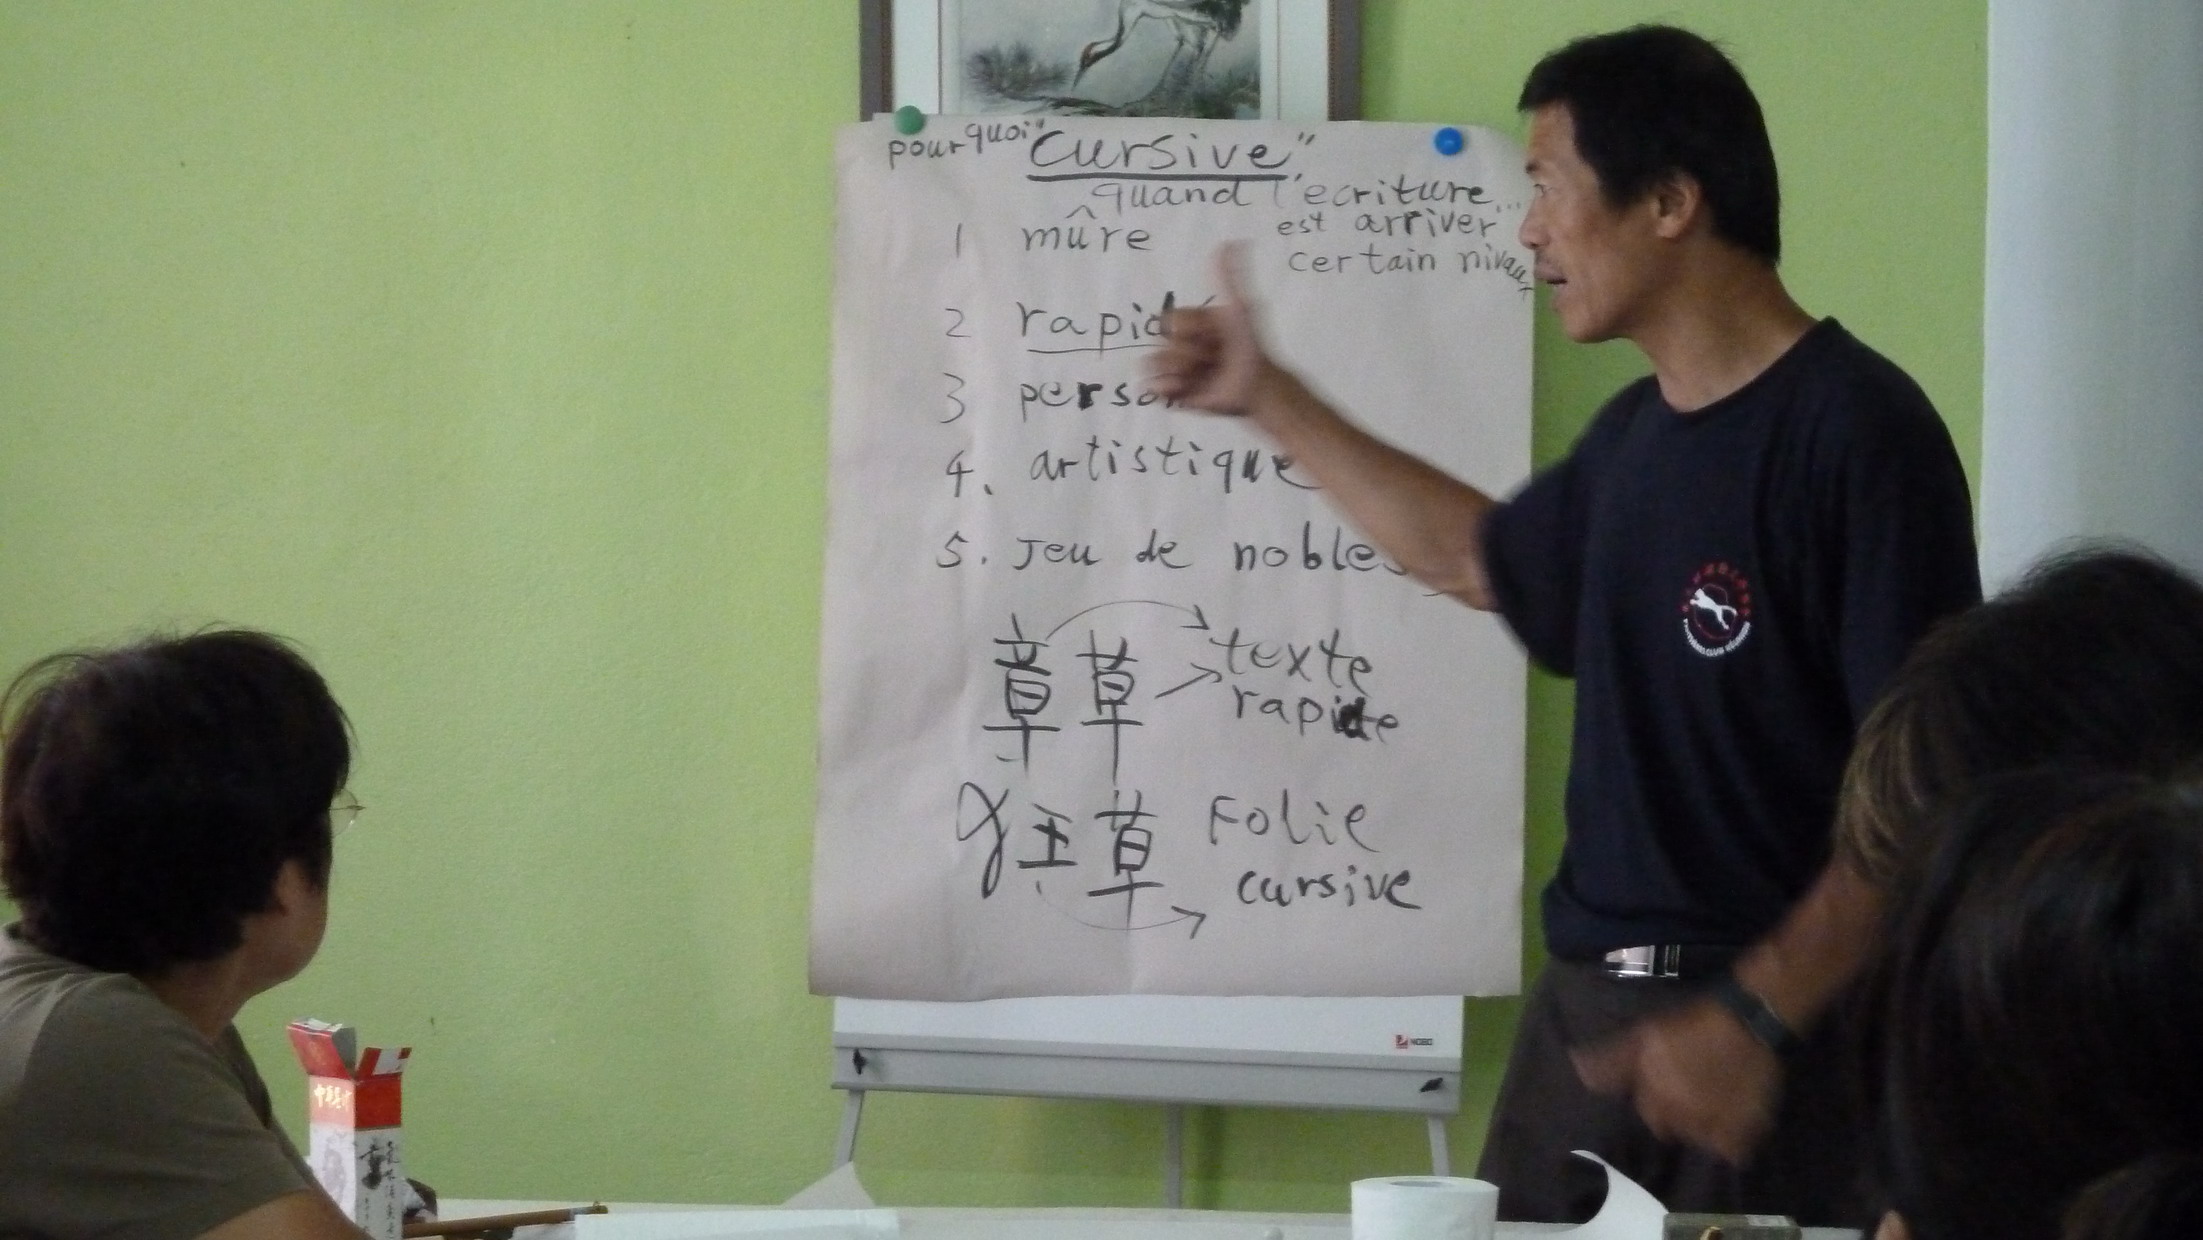 pourquoi "cursive"
quand l'ecriture...
est arriver
certain nivaux
1 mûre
2 rapid
3 person
4. artistique
5. Jeu de nobles
章草 texte
rapide
狂草 Folie
cursive
NOBO